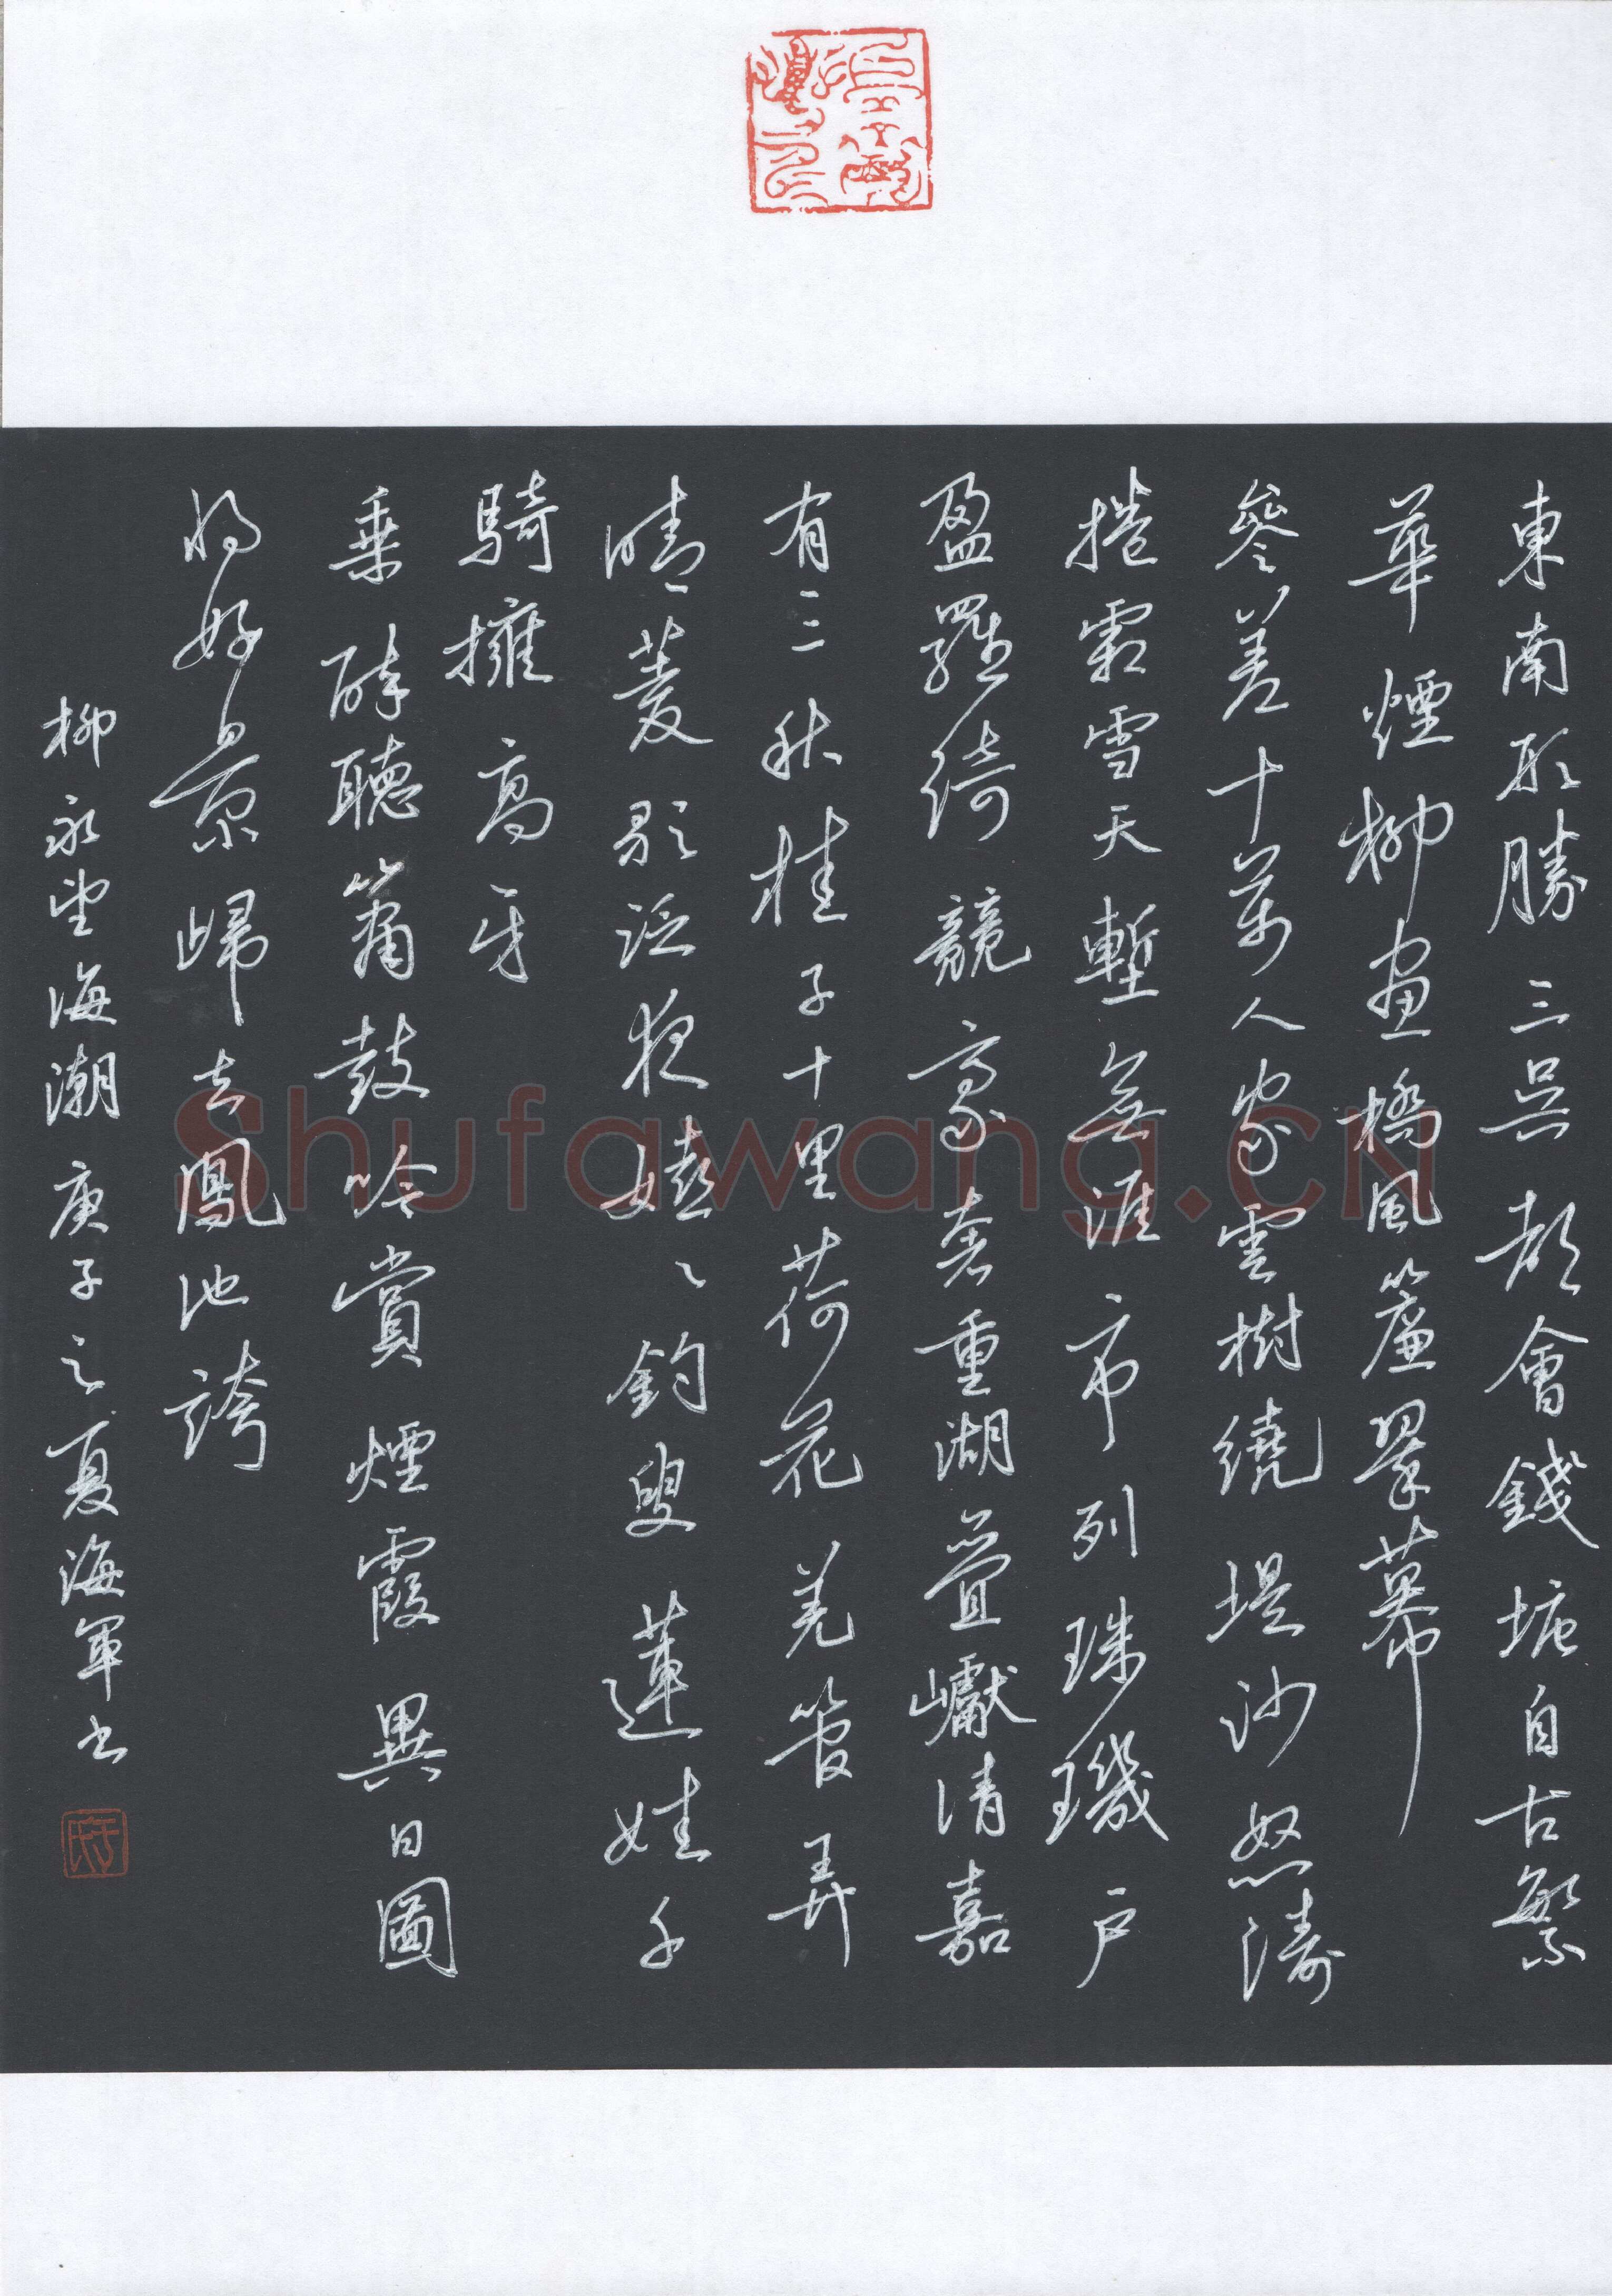 東南形勝三吳都會錢塘自古繁
華煙柳畫橋風簾翠幕
參差十萬人家雲樹繞堤沙怒濤
捲霜雪天塹無涯市列珠璣戶
盈羅綺競豪奢重湖疊巘清嘉
有三秋桂子十里荷花羌管弄
晴菱歌泛夜嬉〻釣叟蓮娃千
騎擁高牙
乘醉聽簫鼓吟賞煙霞異日圖
將好景歸去鳳池誇
柳永望海潮庚子之夏海軍书
Shufawang.CN